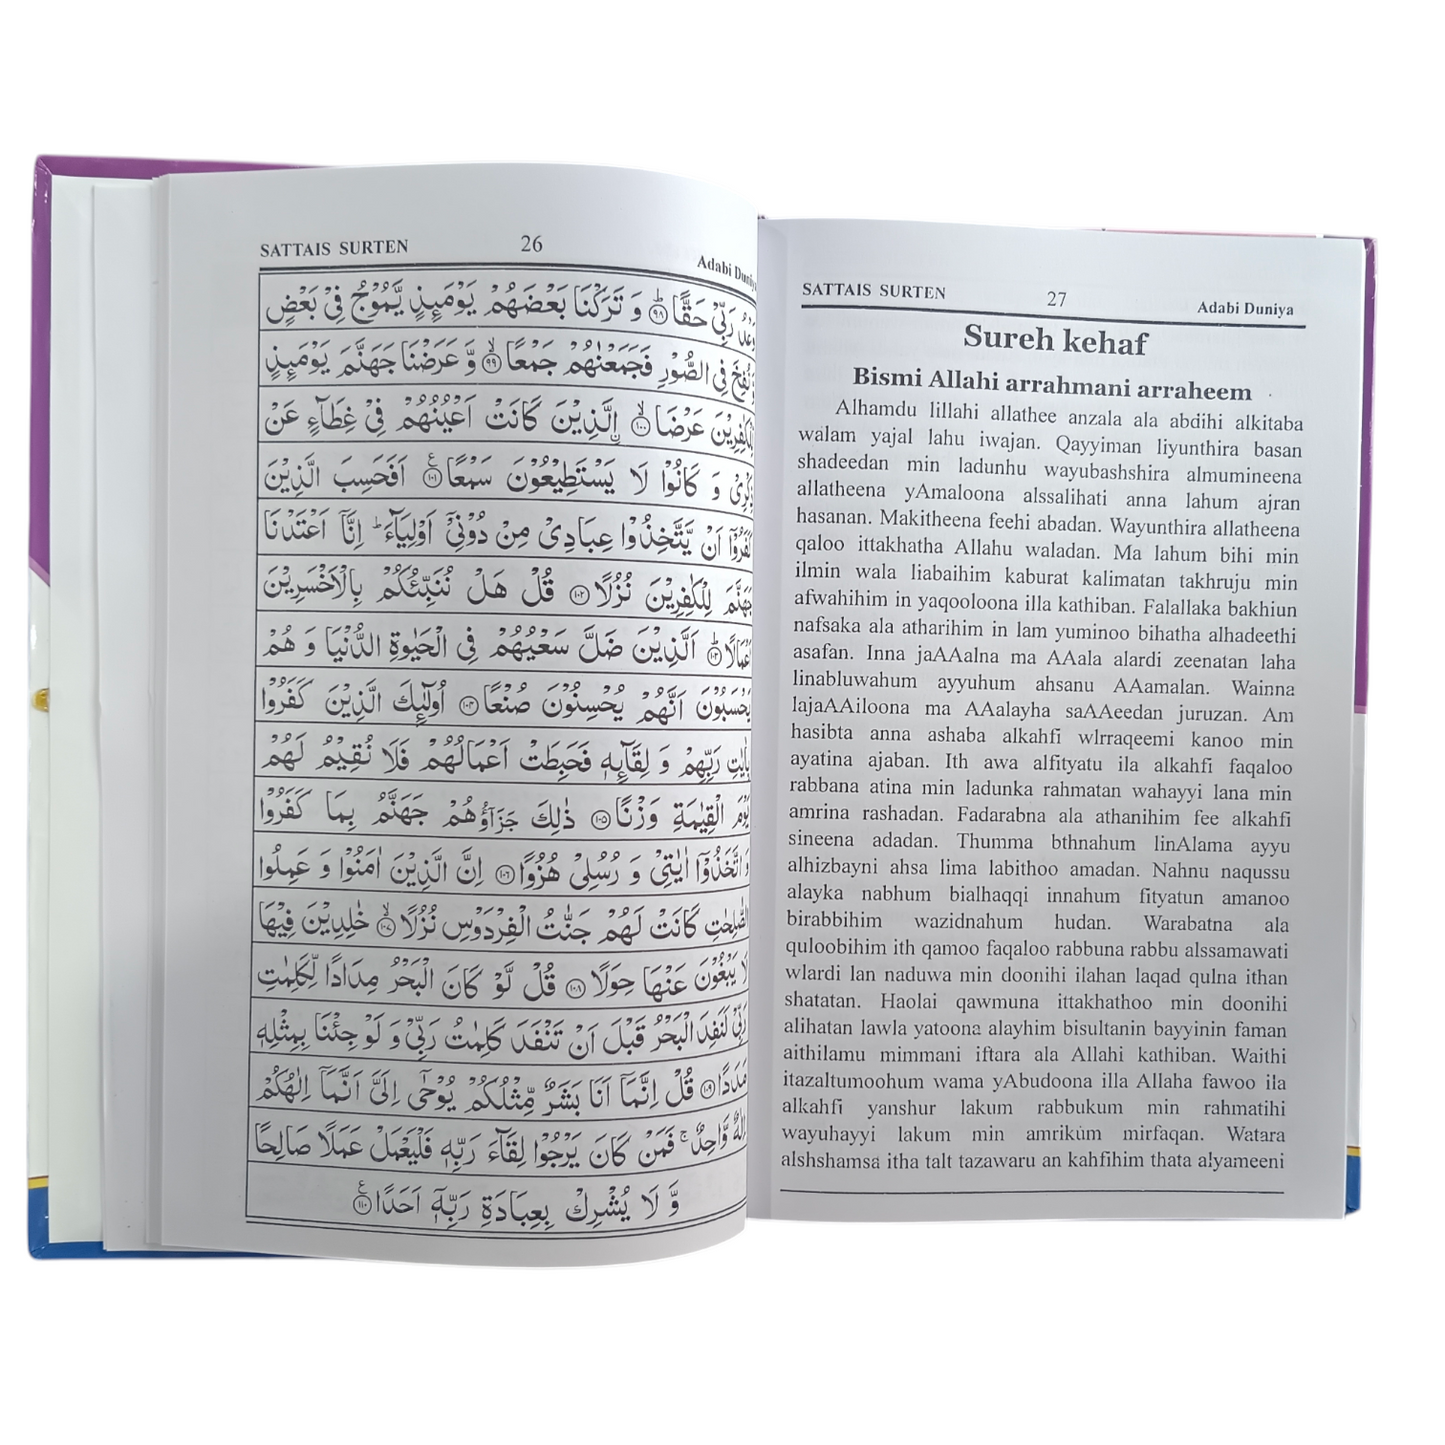 SATTAIS SURTEN 26 Adabi Duniya
وَعْدُ رَبِّیْ حَقًّا ؕ۹۸ وَ تَرَكْنَا بَعْضَهُمْ یَوْمَىِٕذٍ یَّمُوْجُ فِیْ بَعْضٍ
وَّ نُفِخَ فِی الصُّوْرِ فَجَمَعْنٰهُمْ جَمْعًا ۙ۹۹ وَّ عَرَضْنَا جَهَنَّمَ یَوْمَىِٕذٍ
لِّلْكٰفِرِیْنَ عَرْضَا ۙ۱۰۰ الَّذِیْنَ كَانَتْ اَعْیُنُهُمْ فِیْ غِطَآءٍ عَنْ
ذِكْرِیْ وَ كَانُوْا لَا یَسْتَطِیْعُوْنَ سَمْعًا ۱۰۱ اَفَحَسِبَ الَّذِیْنَ
كَفَرُوْۤا اَنْ یَّتَّخِذُوْا عِبَادِیْ مِنْ دُوْنِیْۤ اَوْلِیَآءَ ؕ اِنَّاۤ اَعْتَدْنَا
جَهَنَّمَ لِلْكٰفِرِیْنَ نُزُلًا ۱۰۲ قُلْ هَلْ نُنَبِّئُكُمْ بِالْاَخْسَرِیْنَ
اَعْمَالًا ؕ۱۰۳ اَلَّذِیْنَ ضَلَّ سَعْیُهُمْ فِی الْحَیٰوةِ الدُّنْیَا وَ هُمْ
یَحْسَبُوْنَ اَنَّهُمْ یُحْسِنُوْنَ صُنْعًا ۱۰۴ اُولٰٓىِٕكَ الَّذِیْنَ كَفَرُوْا
بِاٰیٰتِ رَبِّهِمْ وَ لِقَآىِٕهٖ فَحَبِطَتْ اَعْمَالُهُمْ فَلَا نُقِیْمُ لَهُمْ
یَوْمَ الْقِیٰمَةِ وَزْنًا ۱۰۵ ذٰلِكَ جَزَآؤُهُمْ جَهَنَّمُ بِمَا كَفَرُوْا
وَ اتَّخَذُوْۤا اٰیٰتِیْ وَ رُسُلِیْ هُزُوًا ۱۰۶ اِنَّ الَّذِیْنَ اٰمَنُوْا وَ عَمِلُوا
الصّٰلِحٰتِ كَانَتْ لَهُمْ جَنّٰتُ الْفِرْدَوْسِ نُزُلًا ۙ۱۰۷ خٰلِدِیْنَ فِیْهَا
لَا یَبْغُوْنَ عَنْهَا حِوَلًا ۱۰۸ قُلْ لَّوْ كَانَ الْبَحْرُ مِدَادًا لِّكَلِمٰتِ
رَبِّیْ لَنَفِدَ الْبَحْرُ قَبْلَ اَنْ تَنْفَدَ كَلِمٰتُ رَبِّیْ وَ لَوْ جِئْنَا بِمِثْلِهٖ
مَدَدًا ۱۰۹ قُلْ اِنَّمَاۤ اَنَا بَشَرٌ مِّثْلُكُمْ یُوْحٰۤی اِلَیَّ اَنَّمَاۤ اِلٰهُكُمْ
اِلٰهٌ وَّاحِدٌ ۚ فَمَنْ كَانَ یَرْجُوْا لِقَآءَ رَبِّهٖ فَلْیَعْمَلْ عَمَلًا صَالِحًا
وَّ لَا یُشْرِكْ بِعِبَادَةِ رَبِّهٖۤ اَحَدًا ۱۱۰
SATTAIS SURTEN 27 Adabi Duniya
Sureh kehaf
Bismi Allahi arrahmani arraheem
Alhamdu lillahi allathee anzala ala abdihi alkitaba
walam yajal lahu iwajan. Qayyiman liyunthira basan
shadeedan min ladunhu wayubashshira almumineena
allatheena yAmaloona alssalihati anna lahum ajran
hasanan. Makitheena feehi abadan. Wayunthira allatheena
qaloo ittakhatha Allahu waladan. Ma lahum bihi min
ilmin wala liabaihim kaburat kalimatan takhruju min
afwahihim in yaqooloona illa kathiban. Falallaka bakhiun
nafsaka ala atharihim in lam yuminoo bihatha alhadeethi
asafan. Inna jaAAalna ma AAala alardi zeenatan laha
linabluwahum ayyuhum ahsanu AAamalan. Wainna
lajaAAiloona ma AAalayha saAAeedan juruzan. Am
hasibta anna ashaba alkahfi wlrraqeemi kanoo min
ayatina ajaban. Ith awa alfityatu ila alkahfi faqaloo
rabbana atina min ladunka rahmatan wahayyi lana min
amrina rashadan. Fadarabna ala athanihim fee alkahfi
sineena adadan. Thumma bthnahum linAlama ayyu
alhizbayni ahsa lima labithoo amadan. Nahnu naqussu
alayka nabhum bialhaqqi innahum fityatun amanoo
birabbihim wazidnahum hudan. Warabatna ala
quloobihim ith qamoo faqaloo rabbuna rabbu alssamawati
wlardi lan naduwa min doonihi ilahan laqad qulna ithan
shatatan. Haolai qawmuna ittakhathoo min doonihi
alihatan lawla yatoona alayhim bisultanin bayyinin faman
aithilamu mimmani iftara ala Allahi kathiban. Waithi
itazaltumoohum wama yAbudoona illa Allaha fawoo ila
alkahfi yanshur lakum rabbukum min rahmatihi
wayuhayyi lakum min amrikum mirfaqan. Watara
alshshamsa itha talt tazawaru an kahfihim thata alyameeni